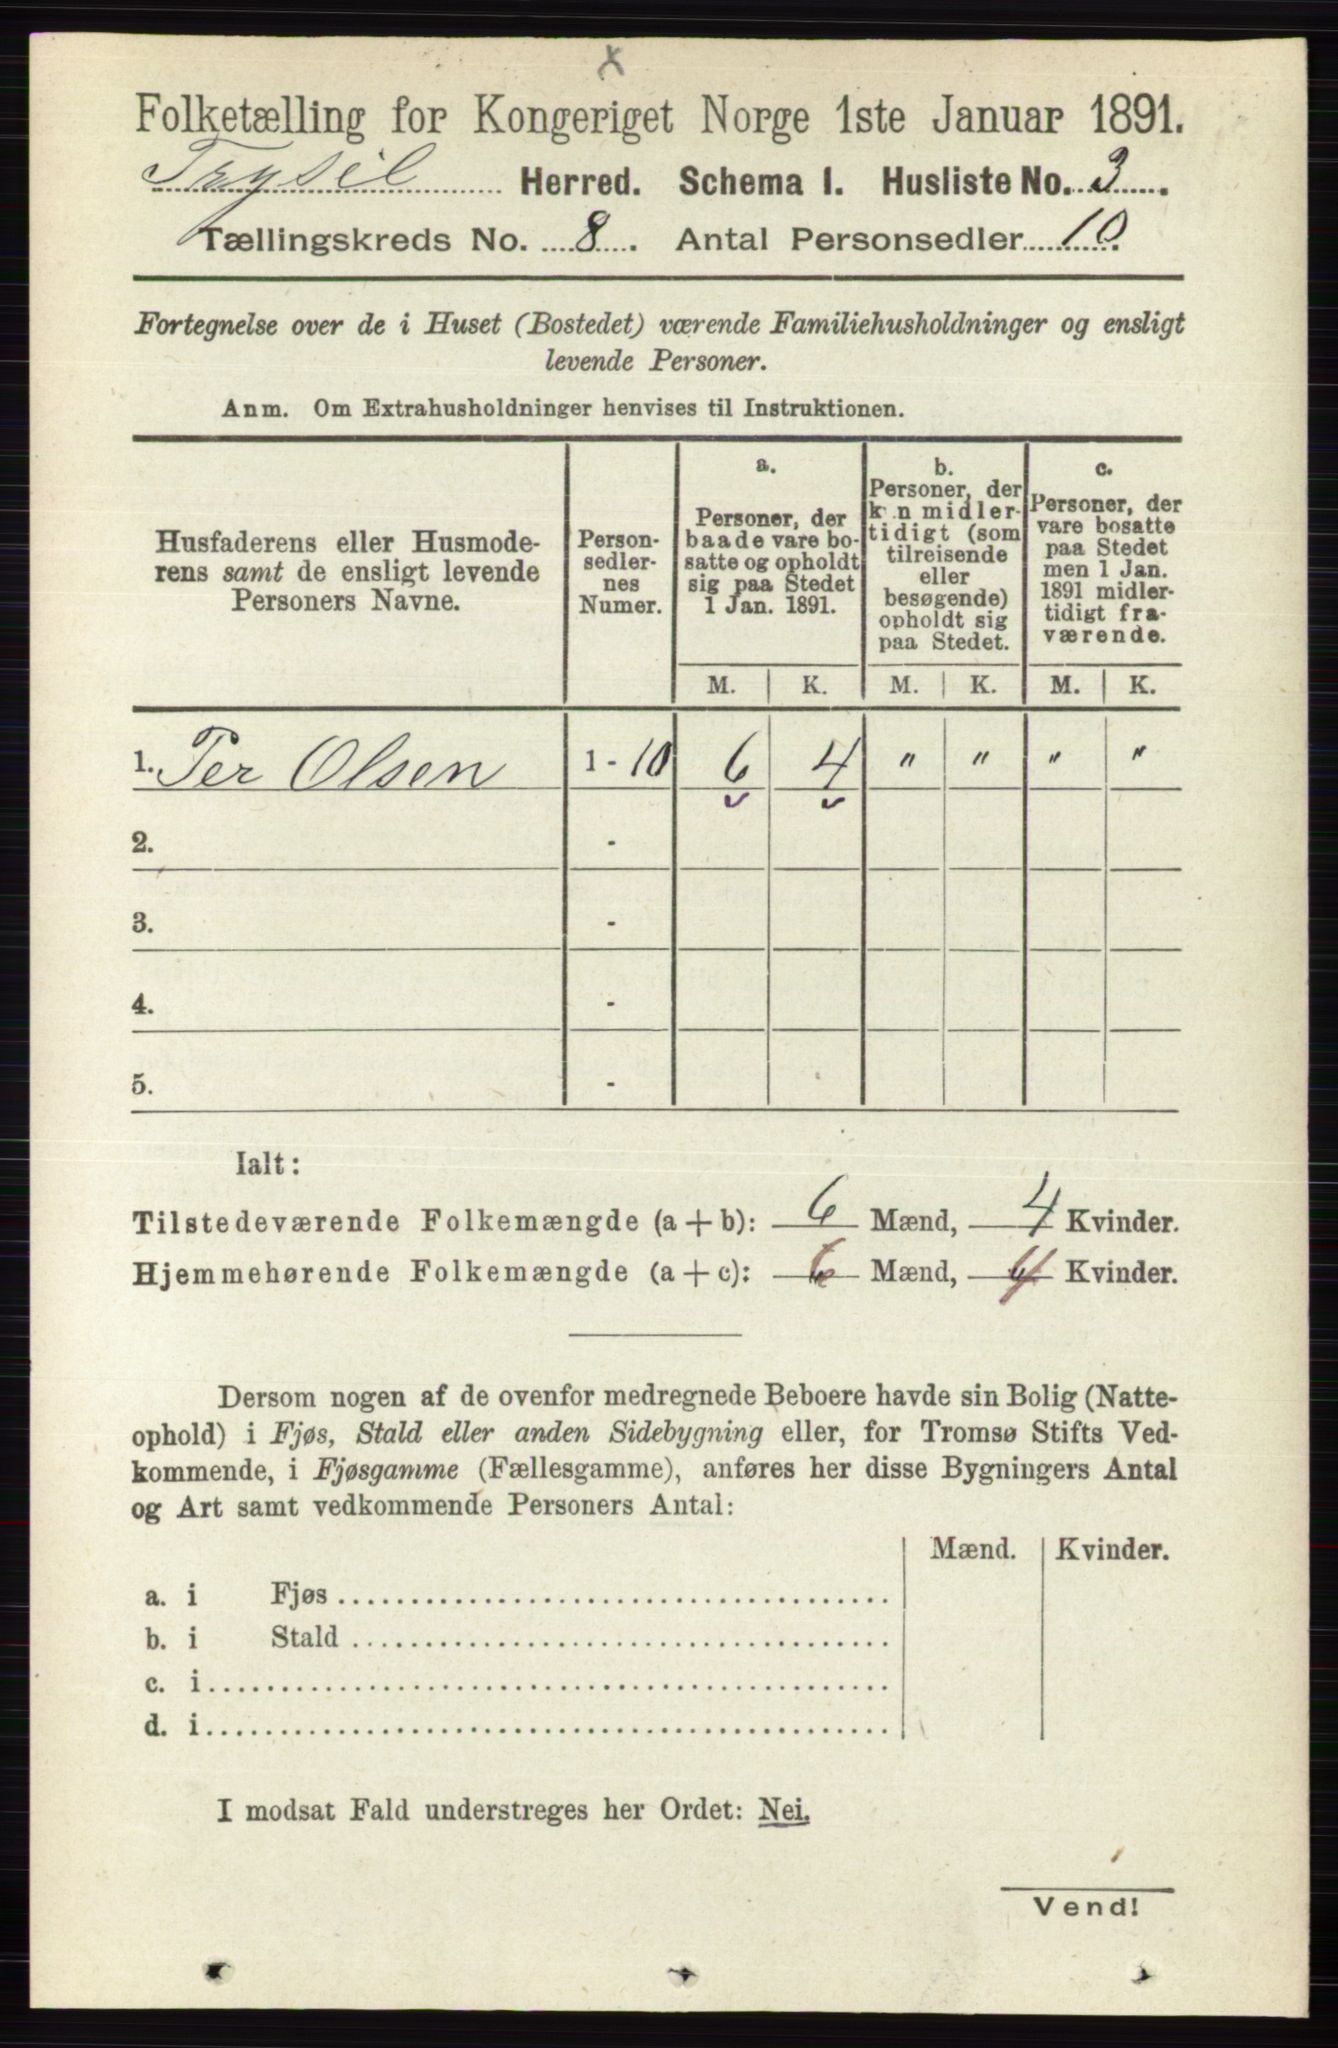 x
Folketælling for Kongeriget Norge 1ste Januar 1891.
Trysil Herred. Schema I. Husliste No. 3.
Tællingskreds No. 8. Antal Personsedler 10.
Fortegnelse over de i Huset (Bostedet) værende Familiehusholdninger og ensligt
levende Personer.
Anm. Om Extrahusholdninger henvises til Instruktionen.
Husfaderens eller Husmode-
rens samt de ensligt levende
Personers Navne.
Person-
sedler-
nes
Numer.
a.
Personer, der
baade vare bo-
satte og opholdt
sig paa Stedet
1 Jan. 1891.
b.
Personer, der
kun midler-
tidigt (som
tilreisende
eller
besøgende)
opholdt sig
paa Stedet.
c.
Personer, der
vare bosatte
paa Stedet
men 1 Jan.
1891 midler-
tidigt fra-
værende.
M. K. M. K. M. K.
1. Per Olsen 1 - 10 6 4 " " " "
2. -
3. -
4. -
5. -
Ialt:
Tilstedeværende Folkemængde (a + b): 6 Mænd, 4 Kvinder.
Hjemmehørende Folkemængde (a + c): 6 Mænd, 4 Kvinder.
Dersom nogen af de ovenfor medregnede Beboere havde sin Bolig (Natte-
ophold) i Fjøs, Stald eller anden Sidebygning eller, for Tromsø Stifts Ved-
kommende, i Fjøsgamme (Fællesgamme), anføres her disse Bygningers Antal
og Art samt vedkommende Personers Antal:
Mænd. Kvinder.
a. i Fjøs
b. i Stald
c. i
d. i
I modsat Fald understreges her Ordet: Nei.
Vend!